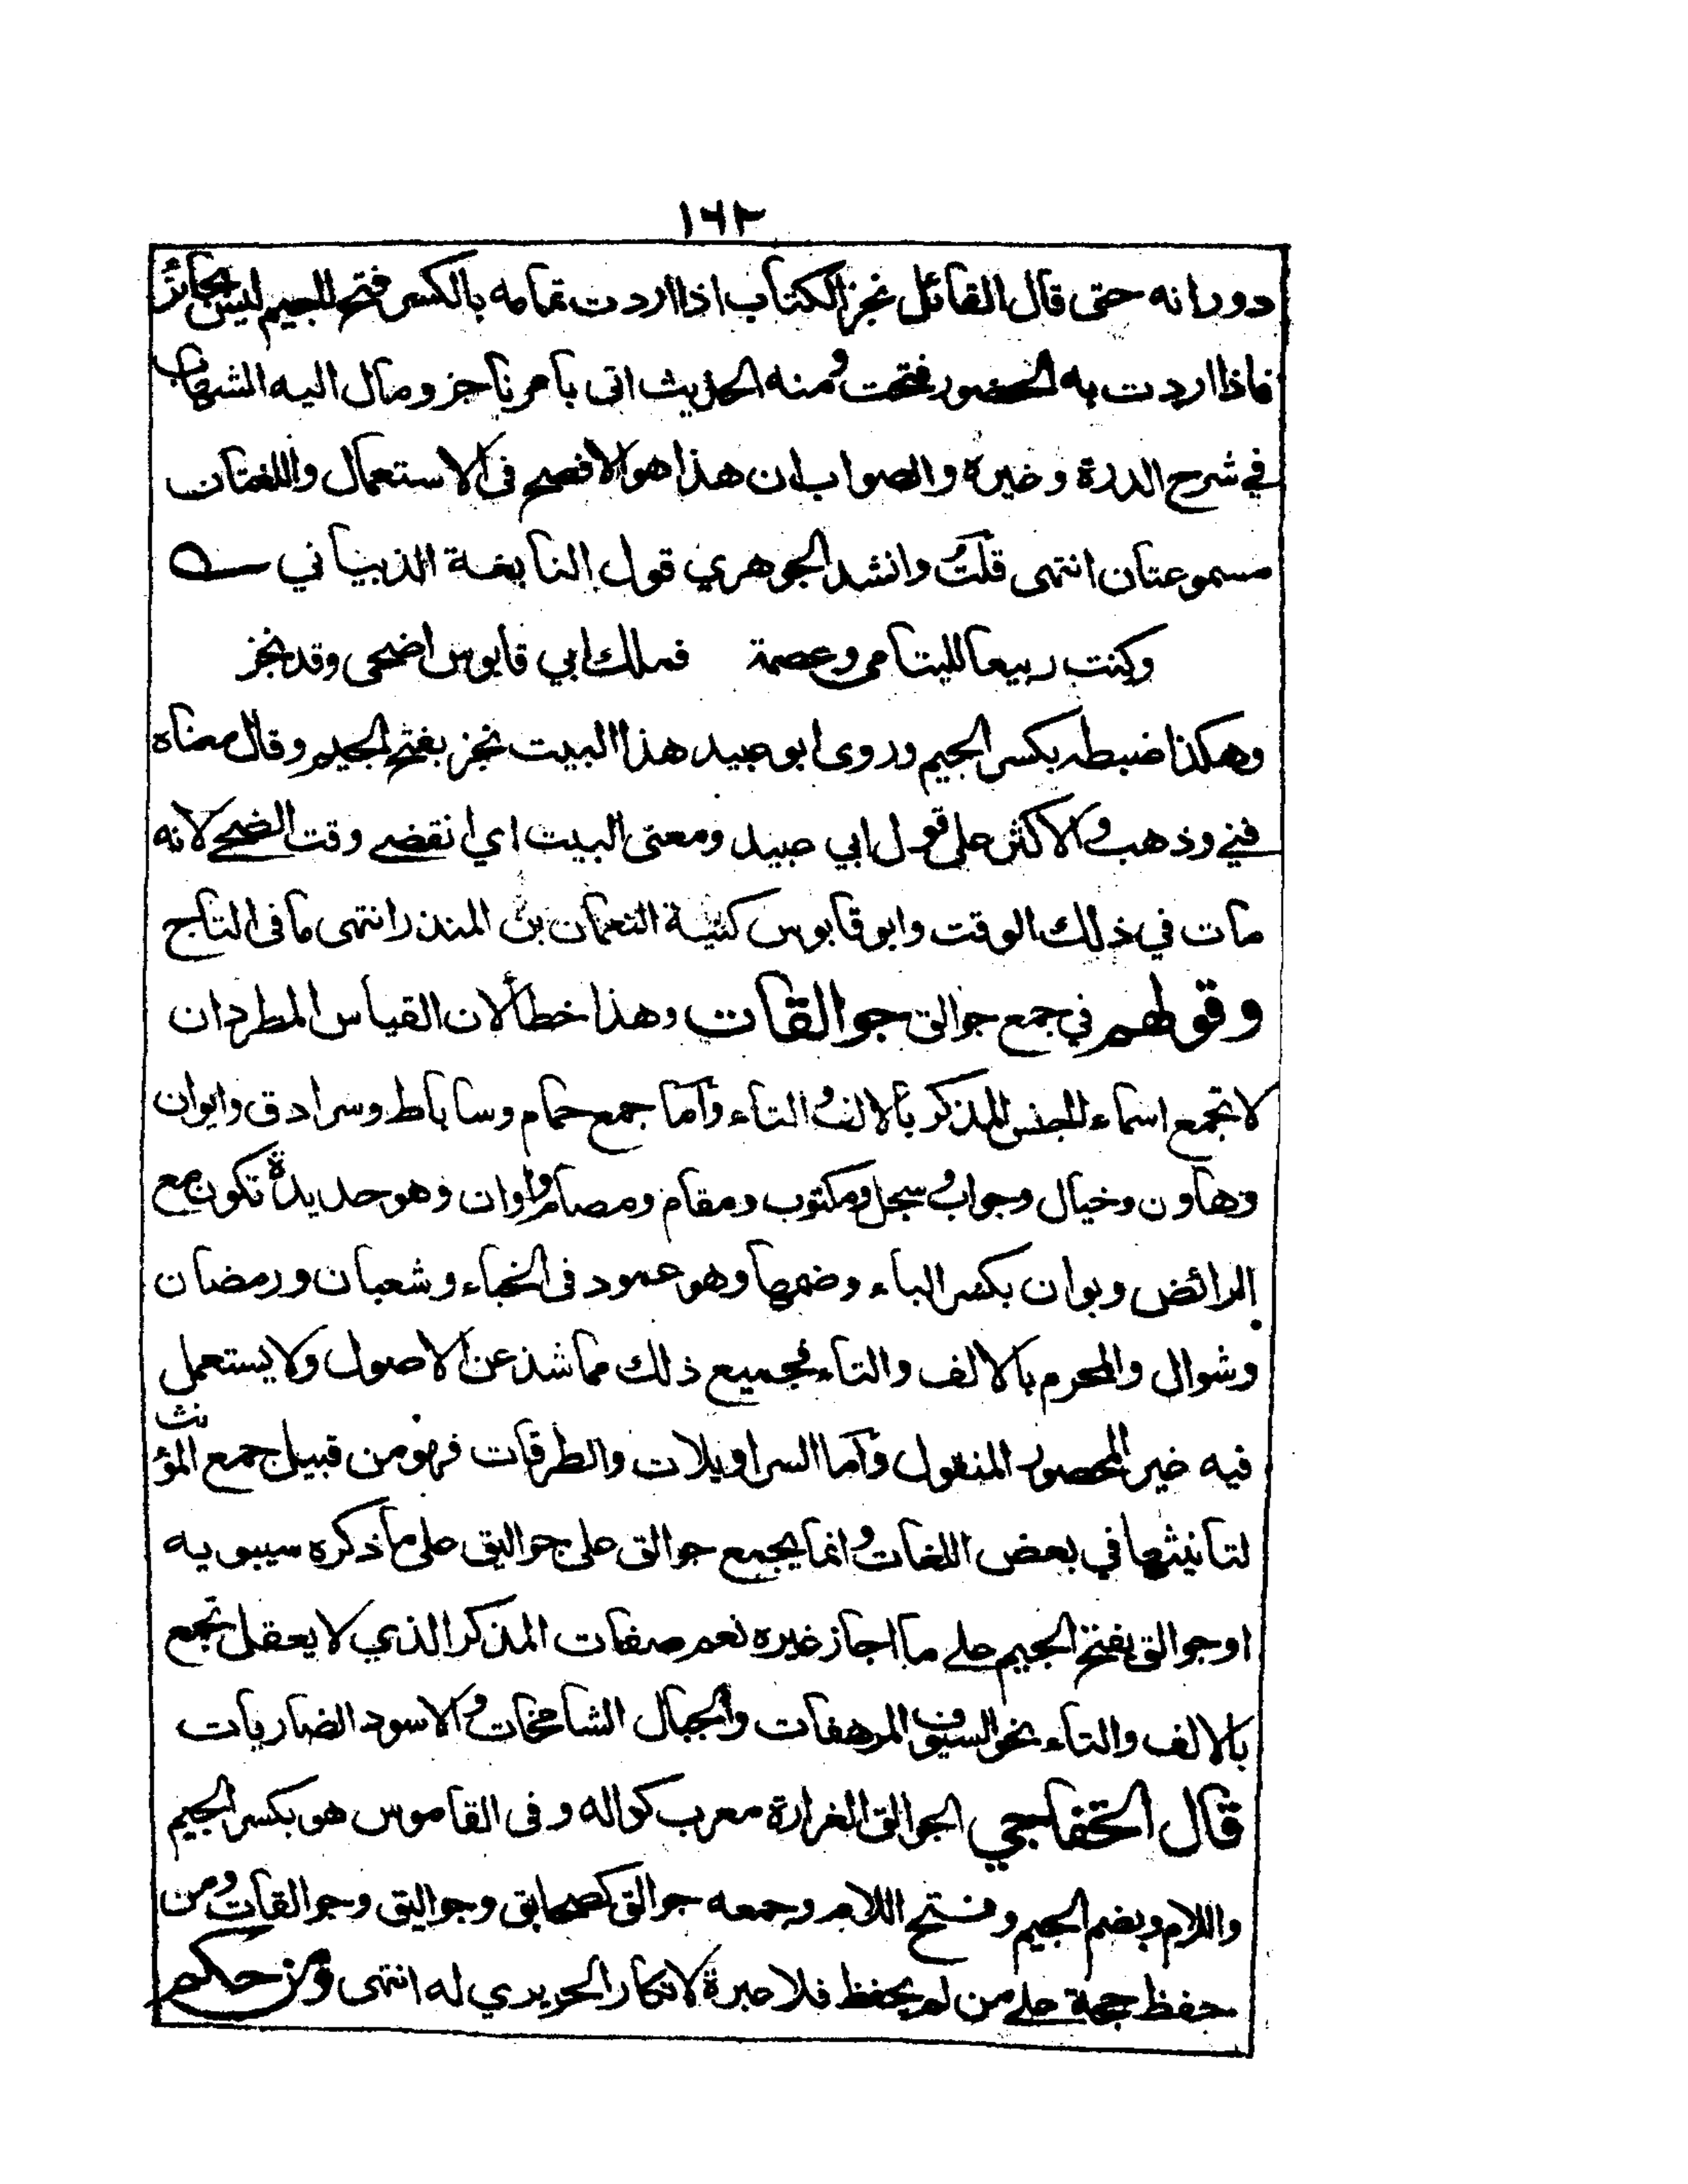 ١٦٢
دورانه حتى قال القائل نجز الكتاب اذا اردت تمامه بالكسر فتح الجيم ليس بجائز
فاذا اردت به الحضور فتحت ومنه الحديث اتى بامر ناجز ومال اليه الشهاب
في شرح الدرة وغيره والصواب ان هذا هو الافصح فى الاستعمال واللغتان
مسموعتان انتهى قلت وانشد الجوهري قول النابغة الذبياني
وكنت ربيعا لليتامى وعصمة فملك ابي قابوس اضحى وقد نجز
وهكذا ضبطه بكسر الجيم وروى ابو عبيد هذا البيت نجز بفتح الجيم وقال معناه
فني وذهب والاكثر على قول ابي عبيد ومعنى البيت اي انقضى وقت الضحى لانه
مات في ذلك الوقت وابو قابوس كنية النعمان بن المنذر انتهى ما فى التاج
وقولهم في جمع جوالق جوالقات وهذا خطأ لان القياس المطرد ان
لا تجمع اسماء الجنس المذكر بالالف والتاء وأما جمع حمام وساباط وسرادق وايوان
وهاون وخيال وجواب وسجل ومكتوب ومقام ومصام واوان وهو حديدة تكون مع
الرائض وبوان بكسر الباء وضمها وهو عمود فى الخباء وشعبان ورمضان
وشوال والمحرم بالالف والتاء فجميع ذلك مما شذ عن الاصول ولا يستعمل
فيه غير المحصور المنقول وأما السراويلات والطرقات فهو من قبيل جمع المؤنث
لتانيثها في بعض اللغات وانما يجمع جوالق على جواليق على ما ذكره سيبويه
او جوالق بفتح الجيم على ما اجاز غيره نعم صفات المذكر الذي لا يعقل تجمع
بالالف والتاء نحو السيوف المرهفات والجبال الشامخات والاسود الضاريات
قال الخفاجي الجوالق الغرارة معرب كواله وفى القاموس هو بكسر الجيم
واللام وبضم الجيم وفتح اللام وجمعه جوالق كصحابق وجواليق وجوالقات ومن
حفظ حجة على من لم يحفظ فلا عبرة لانكار الحريري له انتهى ومن حكم